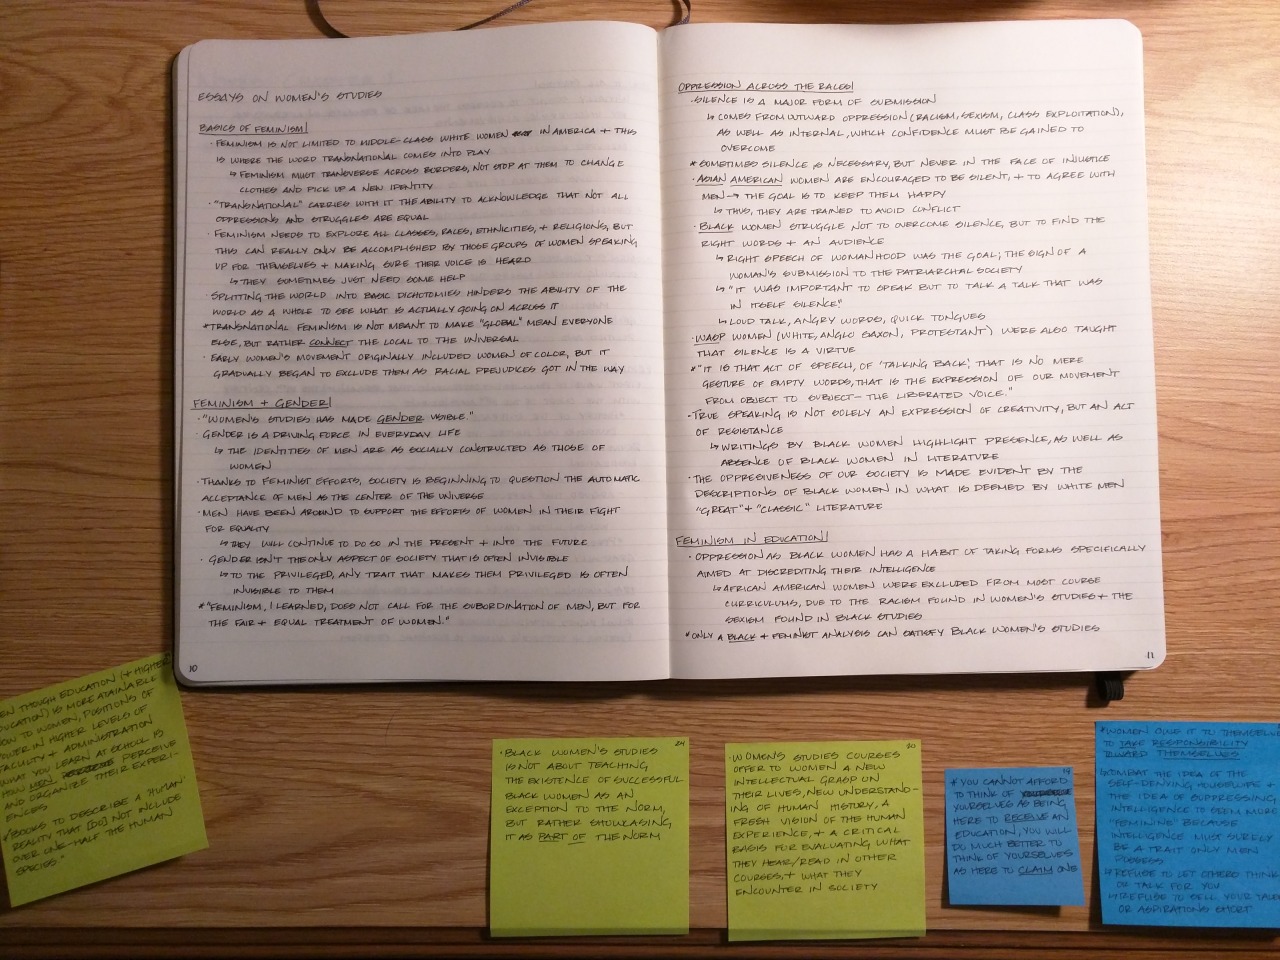 ESSAYS ON WOMEN'S STUDIES
BASICS OF FEMINISM
· FEMINISM IS NOT LIMITED TO MIDDLE-CLASS WHITE WOMEN IN AMERICA + THIS
IS WHERE THE WORD TRANSNATIONAL COMES INTO PLAY
↳ FEMINISM MUST TRANSVERSE ACROSS BORDERS, NOT STOP AT THEM TO CHANGE
CLOTHES AND PICK UP A NEW IDENTITY
· "TRANSNATIONAL" CARRIES WITH IT THE ABILITY TO ACKNOWLEDGE THAT NOT ALL
OPPRESSIONS AND STRUGGLES ARE EQUAL
· FEMINISM NEEDS TO EXPLORE ALL CLASSES, RACES, ETHNICITIES, + RELIGIONS, BUT
THIS CAN REALLY ONLY BE ACCOMPLISHED BY THOSE GROUPS OF WOMEN SPEAKING
UP FOR THEMSELVES + MAKING SURE THEIR VOICE IS HEARD
↳ THEY SOMETIMES JUST NEED SOME HELP
· SPLITTING THE WORLD INTO BASIC DICHOTOMIES HINDERS THE ABILITY OF THE
WORLD AS A WHOLE TO SEE WHAT IS ACTUALLY GOING ON ACROSS IT
* TRANSNATIONAL FEMINISM IS NOT MEANT TO MAKE "GLOBAL" MEAN EVERYONE
ELSE, BUT RATHER CONNECT THE LOCAL TO THE UNIVERSAL
· EARLY WOMEN'S MOVEMENT ORIGINALLY INCLUDED WOMEN OF COLOR, BUT IT
GRADUALLY BEGAN TO EXCLUDE THEM AS RACIAL PREJUDICES GOT IN THE WAY
FEMINISM + GENDER
· "WOMEN'S STUDIES HAS MADE GENDER VISIBLE."
· GENDER IS A DRIVING FORCE IN EVERYDAY LIFE
↳ THE IDENTITIES OF MEN ARE AS SOCIALLY CONSTRUCTED AS THOSE OF
WOMEN
· THANKS TO FEMINIST EFFORTS, SOCIETY IS BEGINNING TO QUESTION THE AUTOMATIC
ACCEPTANCE OF MEN AS THE CENTER OF THE UNIVERSE
· MEN HAVE BEEN AROUND TO SUPPORT THE EFFORTS OF WOMEN IN THEIR FIGHT
FOR EQUALITY
↳ THEY WILL CONTINUE TO DO SO IN THE PRESENT + INTO THE FUTURE
· GENDER ISN'T THE ONLY ASPECT OF SOCIETY THAT IS OFTEN INVISIBLE
↳ TO THE PRIVILEGED, ANY TRAIT THAT MAKES THEM PRIVILEGED IS OFTEN
INVISIBLE TO THEM
* "FEMINISM, I LEARNED, DOES NOT CALL FOR THE SUBORDINATION OF MEN, BUT FOR
THE FAIR + EQUAL TREATMENT OF WOMEN."
10
OPPRESSION ACROSS THE RACES
· SILENCE IS A MAJOR FORM OF SUBMISSION
↳ COMES FROM OUTWARD OPPRESSION (RACISM, SEXISM, CLASS EXPLOITATION),
AS WELL AS INTERNAL, WHICH CONFIDENCE MUST BE GAINED TO
OVERCOME
* SOMETIMES SILENCE IS NECESSARY, BUT NEVER IN THE FACE OF INJUSTICE
· ASIAN AMERICAN WOMEN ARE ENCOURAGED TO BE SILENT, + TO AGREE WITH
MEN → THE GOAL IS TO KEEP THEM HAPPY
↳ THUS, THEY ARE TRAINED TO AVOID CONFLICT
· BLACK WOMEN STRUGGLE NOT TO OVERCOME SILENCE, BUT TO FIND THE
RIGHT WORDS + AN AUDIENCE
↳ RIGHT SPEECH OF WOMANHOOD WAS THE GOAL; THE SIGN OF A
WOMAN'S SUBMISSION TO THE PATRIARCHAL SOCIETY
↳ "IT WAS IMPORTANT TO SPEAK BUT TO TALK A TALK THAT WAS
IN ITSELF SILENCE"
↳ LOUD TALK, ANGRY WORDS, QUICK TONGUES
· WASP WOMEN (WHITE, ANGLO SAXON, PROTESTANT) WERE ALSO TAUGHT
THAT SILENCE IS A VIRTUE
* "IT IS THAT ACT OF SPEECH, OF 'TALKING BACK', THAT IS NO MERE
GESTURE OF EMPTY WORDS, THAT IS THE EXPRESSION OF OUR MOVEMENT
FROM OBJECT TO SUBJECT — THE LIBERATED VOICE."
· TRUE SPEAKING IS NOT SOLELY AN EXPRESSION OF CREATIVITY, BUT AN ACT
OF RESISTANCE
↳ WRITINGS BY BLACK WOMEN HIGHLIGHT PRESENCE, AS WELL AS
ABSENCE OF BLACK WOMEN IN LITERATURE
· THE OPPRESIVENESS OF OUR SOCIETY IS MADE EVIDENT BY THE
DESCRIPTIONS OF BLACK WOMEN IN WHAT IS DEEMED BY WHITE MEN
"GREAT" + "CLASSIC" LITERATURE
FEMINISM IN EDUCATION
· OPPRESSION AS BLACK WOMEN HAS A HABIT OF TAKING FORMS SPECIFICALLY
AIMED AT DISCREDITING THEIR INTELLIGENCE
↳ AFRICAN AMERICAN WOMEN WERE EXCLUDED FROM MOST COURSE
CURRICULUMS, DUE TO THE RACISM FOUND IN WOMEN'S STUDIES + THE
SEXISM FOUND IN BLACK STUDIES
* ONLY A BLACK + FEMINIST ANALYSIS CAN SATISFY BLACK WOMEN'S STUDIES
EN THOUGH EDUCATION (+ HIGHER
UCATION) IS MORE ATAINABLE
OW TO WOMEN, POSITIONS OF
OWER IN HIGHER LEVELS OF
ACULTY + ADMINISTRATION
WHAT YOU LEARN AT SCHOOL IS
HOW MEN PERCEIVE
AND ORGANIZE THEIR EXPERI-
ENCES
* "BOOKS TO DESCRIBE A 'HUMAN'
REALITY THAT [DO] NOT INCLUDE
OVER ONE-HALF THE HUMAN
SPECIES."
24
· BLACK WOMEN'S STUDIES
IS NOT ABOUT TEACHING
THE EXISTENCE OF SUCCESSFUL
BLACK WOMEN AS AN
EXCEPTION TO THE NORM,
BUT RATHER SHOWCASING
IT AS PART OF THE NORM
20
· WOMEN'S STUDIES COURSES
OFFER TO WOMEN A NEW
INTELLECTUAL GRASP ON
THEIR LIVES, NEW UNDERSTAND-
ING OF HUMAN HISTORY, A
FRESH VISION OF THE HUMAN
EXPERIENCE, + A CRITICAL
BASIS FOR EVALUATING WHAT
THEY HEAR/READ IN OTHER
COURSES, + WHAT THEY
ENCOUNTER IN SOCIETY
19
* YOU CANNOT AFFORD
TO THINK OF
YOURSELVES AS BEING
HERE TO RECEIVE AN
EDUCATION, YOU WILL
DO MUCH BETTER TO
THINK OF YOURSELVES
AS HERE TO CLAIM ONE
* WOMEN OWE IT TO THEMSELVES
TO TAKE RESPONSIBILITY
TOWARD THEMSELVES
↳ COMBAT THE IDEA OF THE
SELF-DENYING HOUSEWIFE +
THE IDEA OF SUPPRESSING
INTELLIGENCE TO SEEM MORE
"FEMININE" BECAUSE
INTELLIGENCE MUST SURELY
BE A TRAIT ONLY MEN
POSSESS
↳ REFUSE TO LET OTHERS THINK
OR TALK FOR YOU
↳ REFUSE TO SELL YOUR TALENT
OR ASPIRATIONS SHORT